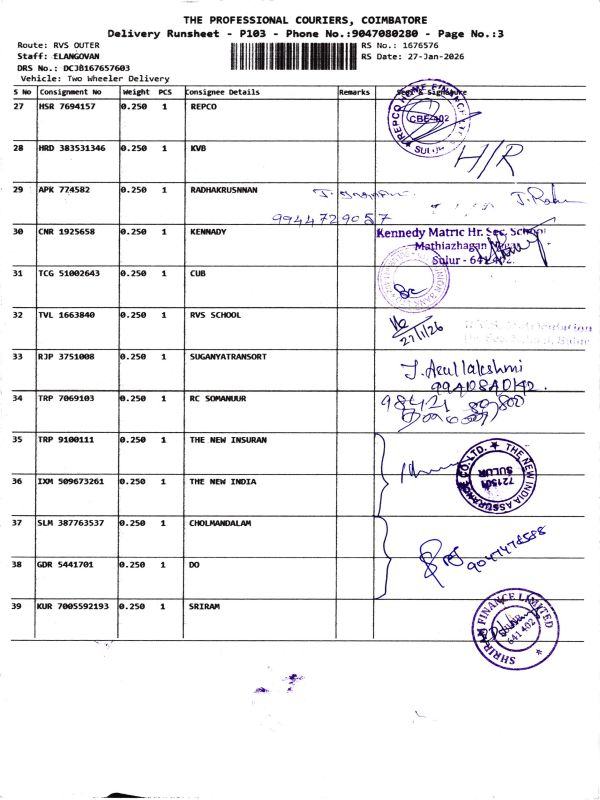 THE PROFESSIONAL COURIERS, COIMBATORE
Delivery Runsheet - P103 - Phone No.:9047080280 - Page No.:3
Route: RVS OUTER
RS No.: 1676576
Staff: ELANGOVAN
RS Date: 27-Jan-2026
DRS No.: DCJB167657603
Vehicle: Two Wheeler Delivery
S No Consignment No Weight PCS Consignee Details Remarks Seal & Signature
27 HSR 7694157 0.250 1 REPCO
REPCO HOME FINANCE LTD
CBE-402
SULUR
28 HRD 383531346 0.250 1 KVB
H/R
29 APK 774582 0.250 1 RADHAKRUSNNAN
9944729057
30 CNR 1925658 0.250 1 KENNADY
Kennedy Matric Hr. Sec. School
Mathiazhagan
Sulur - 641 402.
31 TCG 51002643 0.250 1 CUB
32 TVL 1663840 0.250 1 RVS SCHOOL
27/1/26
33 RJP 3751008 0.250 1 SUGANYATRANSORT
J. Arullakshmi
34 TRP 7069103 0.250 1 RC SOMANUUR
98421
35 TRP 9100111 0.250 1 THE NEW INSURAN
36 IXM 509673261 0.250 1 THE NEW INDIA
THE NEW INDIA ASSURANCE CO. LTD.
721501
SULUR
37 SLM 387763537 0.250 1 CHOLMANDALAM
38 GDR 5441701 0.250 1 DO
39 KUR 7005592193 0.250 1 SRIRAM
SHRIRAM FINANCE LIMITED
641 402